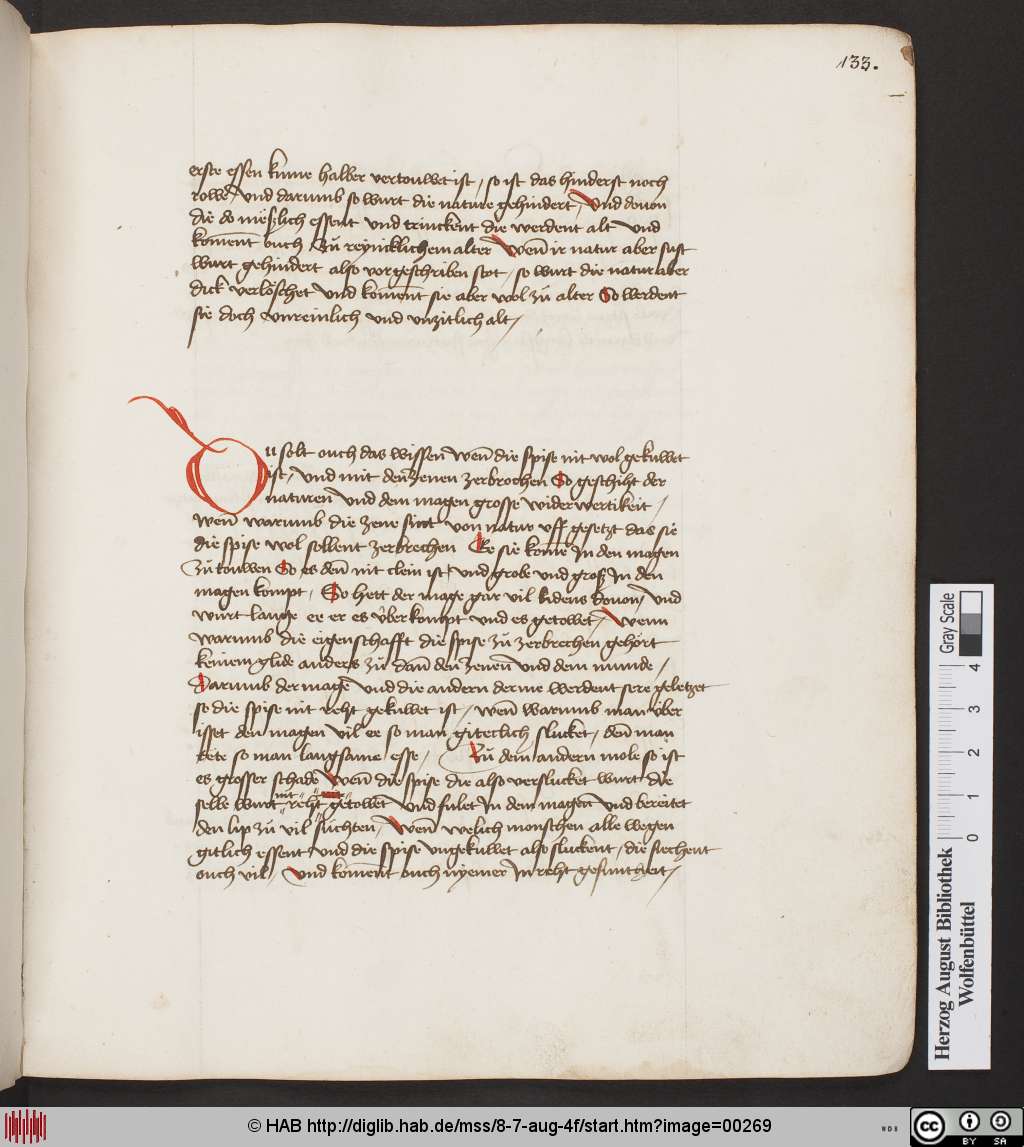 133.
erste essen kume halber vertouwet ist / so ist das hinderst noch
rowe / vnd darumb so wurt die nature gehindert / Vnd douon
die do meszlich essent vnd trinckent die werdent alt vnd
koment ouch zu alter Wen̄ ir natur aber sust
wurt gehindert also vor geschriben stot / so wurt die natur aber
dick verlöschet vnd koment sie aber wol zu alter So werdent
sie doch vnreinlich vnd vnzitlich alt /
Du solt ouch das wissen wen̄ die spise nit wol gekuwet
ist / vnd mit den̄ zenen zerbrochen So geschiht der
naturen vnd dem magen grosse widerwertikeit /
wen̄ warumb die zene sint von natur vff gesetzt das sie
die spise wol sollent zerbrechen Ee sie kome In den magen
zu touwen So es den̄ nit clein ist / vnd grobe vnd grosz In den
magen kompt / So hett der mage gar vil lidens douon / vnd
wurt lange ee er es v̈ber kompt vnd es getowet / Wenn
warumb die eigenschafft die spise zu zerbrechen gehört
keinem glide anders zu dan̄ den zenen vnd dem munde /
Darumb der mage vnd die andern derme werdent sere geletzet
so die spise nit reht gekuwet ist / wen̄ warumb man v̈ber
isset den magen vil er so man giteclich slucket / den̄ man
tete so man langsame esse / Zu dem andern mole so ist
es grosser schade Wen̄ die spise die also verslucket wurt die
selbe wurt nit reht getowet vnd fulet In dem magen vnd bereitet
den lip zu vil suchten / Wen̄ welich monschen alle wegen
gitlich essent vnd die spise vngekuwet also sluckent / die siechent
ouch vil / Vnd koment ouch nyemer In reht gesuntheit /
Herzog August Bibliothek
Wolfenbüttel
Gray Scale
0 1 2 3 4
© HAB http://diglib.hab.de/mss/8-7-aug-4f/start.htm?image=00269
WDB
cc BY SA